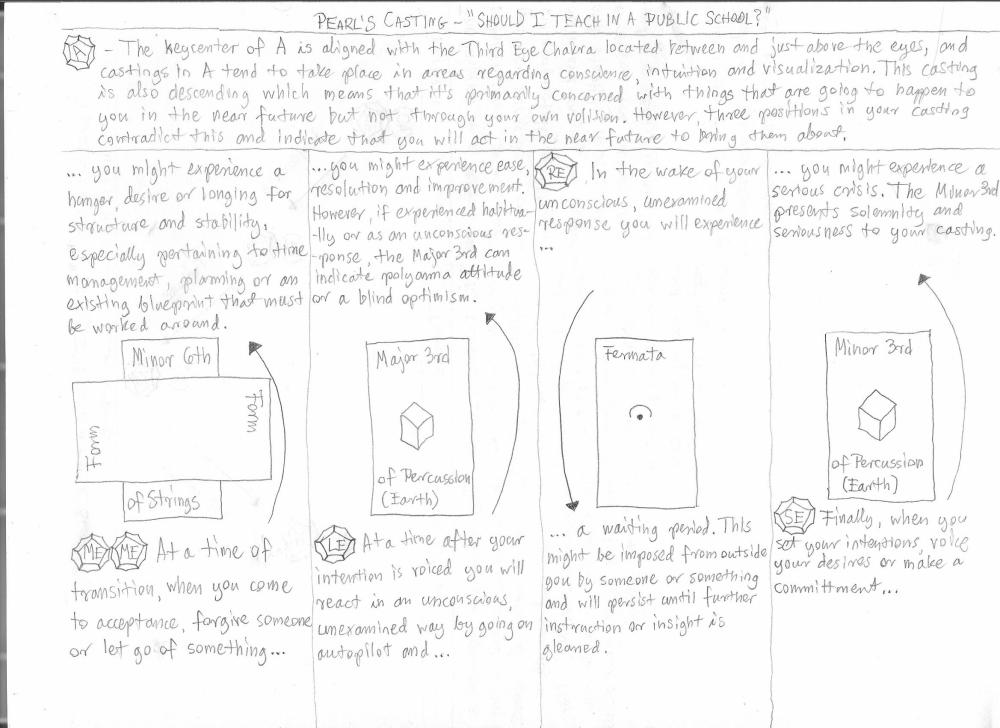 PEARL'S CASTING - "SHOULD I TEACH IN A PUBLIC SCHOOL?"
A - The keycenter of A is aligned with the Third Eye Chakra located between and just above the eyes, and
castings in A tend to take place in areas regarding conscience, intuition and visualization. This casting
is also descending which means that it's primarily concerned with things that are going to happen to
you in the near future but not through your own volition. However, three positions in your casting
contradict this and indicate that you will act in the near future to bring them about.
... you might experience a
hunger, desire or longing for
structure and stability,
especially pertaining to time
management, planning or an
existing blueprint that must
be worked around.
Minor 6th
Form
Form
of Strings
ME ME At a time of
transition, when you come
to acceptance, forgive someone
or let go of something...
...you might experience ease,
resolution and improvement.
However, if experienced habitua-
-lly or as an unconscious res-
-ponse, the Major 3rd can
indicate polyanna attitude
or a blind optimism.
Major 3rd
of Percussion
(Earth)
LE At a time after your
intention is voiced you will
react in an unconscious,
unexamined way by going on
autopilot and...
RE In the wake of your
unconscious, unexamined
response you will experience
...
Fermata
... a waiting period. This
might be imposed from outside
you by someone or something
and will persist until further
instruction or insight is
gleaned.
... you might experience a
serious crisis. The Minor 3rd
presents solemnity and
seriousness to your casting.
Minor 3rd
of Percussion
(Earth)
SE Finally, when you
set your intentions, voice
your desires or make a
committment...